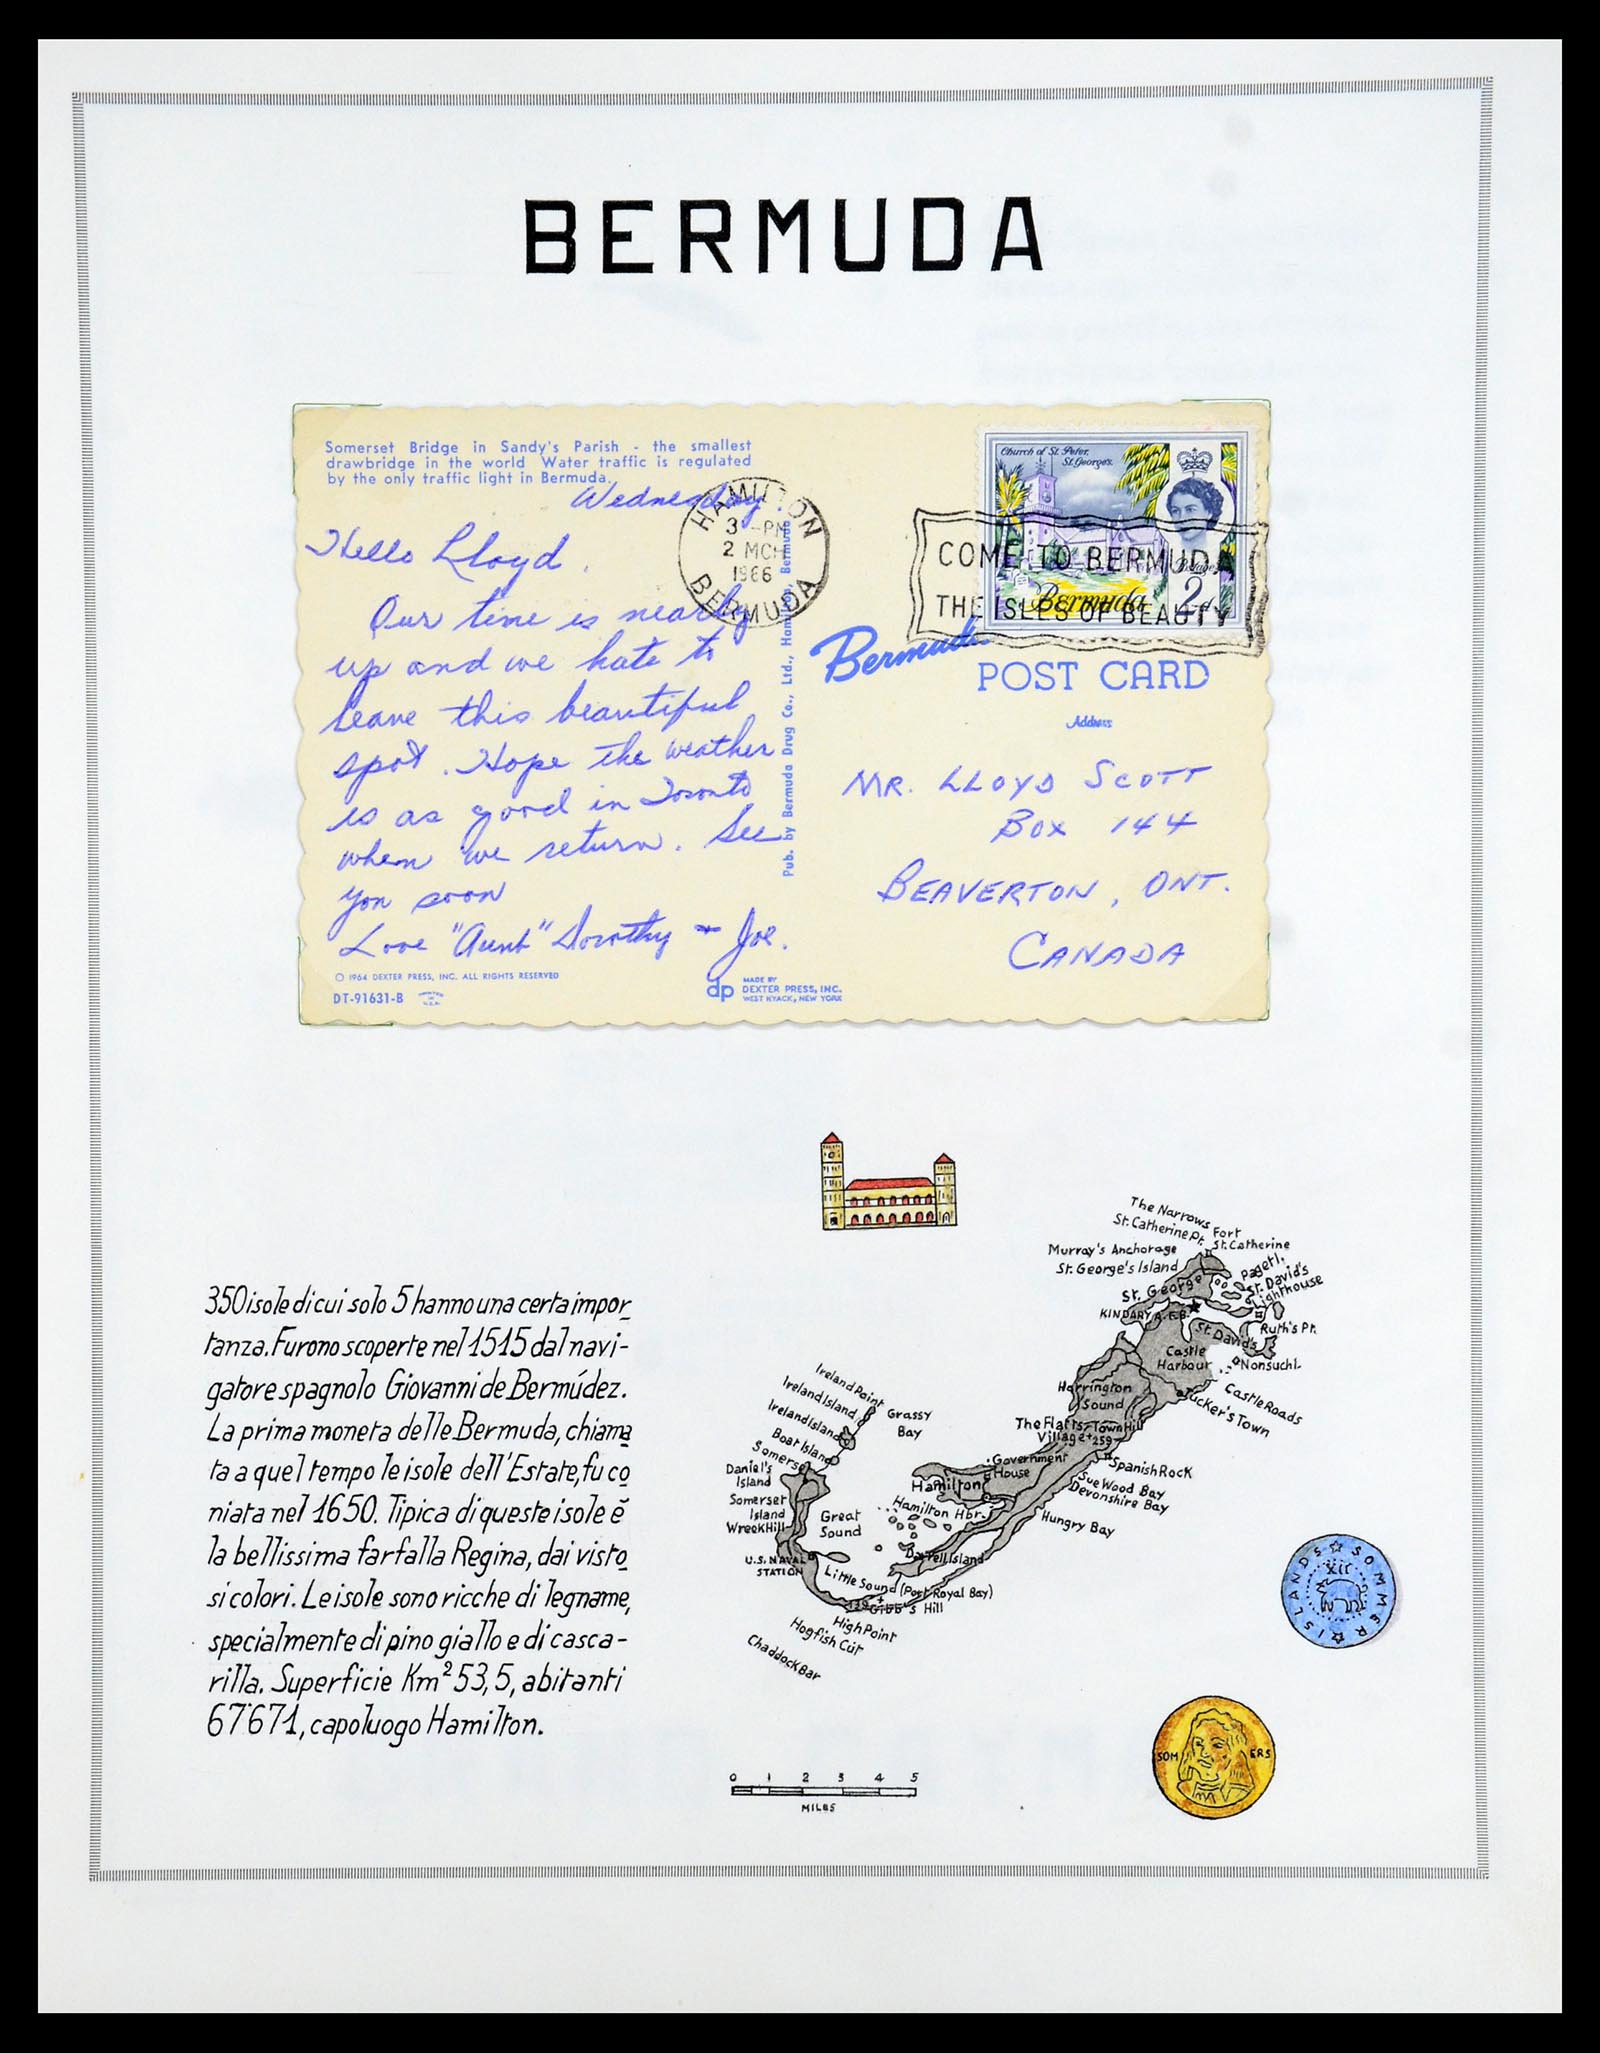 BERMUDA
Somerset Bridge in Sandy's Parish - the smallest
drawbridge in the world Water traffic is regulated
by the only traffic light in Bermuda.
Wednesday.
Hello Lloyd.
Our time is nearly
up and we hate to
leave this beautiful
spot. Hope the weather
is as good in Toronto
when we return. See
you soon
Love "Aunt" Dorothy + Joe.
© 1964 DEXTER PRESS, INC. ALL RIGHTS RESERVED
DT-91631-B
PRINTED
IN
U.S.A.
dp
MADE BY
DEXTER PRESS, INC.
WEST NYACK, NEW YORK
HAMILTON
3 -PM
2 MCH
1966
BERMUDA
Pub. by Bermuda Drug Co., Ltd., Hamilton, Bermuda
Church of St. Peter,
St. George's.
Postage
2d
Bermuda
COME TO BERMUDA
THE ISLES OF BEAUTY
Bermuda
POST CARD
Address
MR. LLOYD SCOTT
BOX 144
BEAVERTON, ONT.
CANADA
350 isole di cui solo 5 hanno una certa impor
tanza. Furono scoperte nel 1515 dal navi-
gatore spagnolo Giovanni de Bermúdez.
La prima moneta delle Bermuda, chiama
ta a quel tempo le isole dell'Estate, fu co
niata nel 1650. Tipica di queste isole è
la bellissima farfalla Regina, dai visto
si colori. Le isole sono ricche di legname,
specialmente di pino giallo e di casca-
rilla. Superficie Km² 53,5, abitanti
67'671, capoluogo Hamilton.
The Narrows
St. Catherine Pt.
Fort
St. Catherine
Murray's Anchorage
St. George's Island
Paget I.
St. David's
Lighthouse
St. George
KINDARY A.F.B.
St. David's
Ruth's Pt.
Castle
Harbour
Nonsuch I.
Castle Roads
Tucker's Town
Harrington
Sound
The Flatts
Village
Town Hill
259
Ireland Point
Ireland Island
Ireland Island
Grassy
Bay
Boat Island
Somerset
Daniel's
Island
Somerset
Island
Wreck Hill
Great
Sound
Government
House
Hamilton
Hamilton Hbr.
Spanish Rock
Sue Wood Bay
Devonshire Bay
Hungry Bay
U.S. NAVAL
STATION
Little Sound (Port Royal Bay)
Gibb's Hill
High Point
Hogfish Cut
Chaddock Bar
0 1 2 3 4 5
MILES
ISLANDS SOMMER
XII
SOM ERS